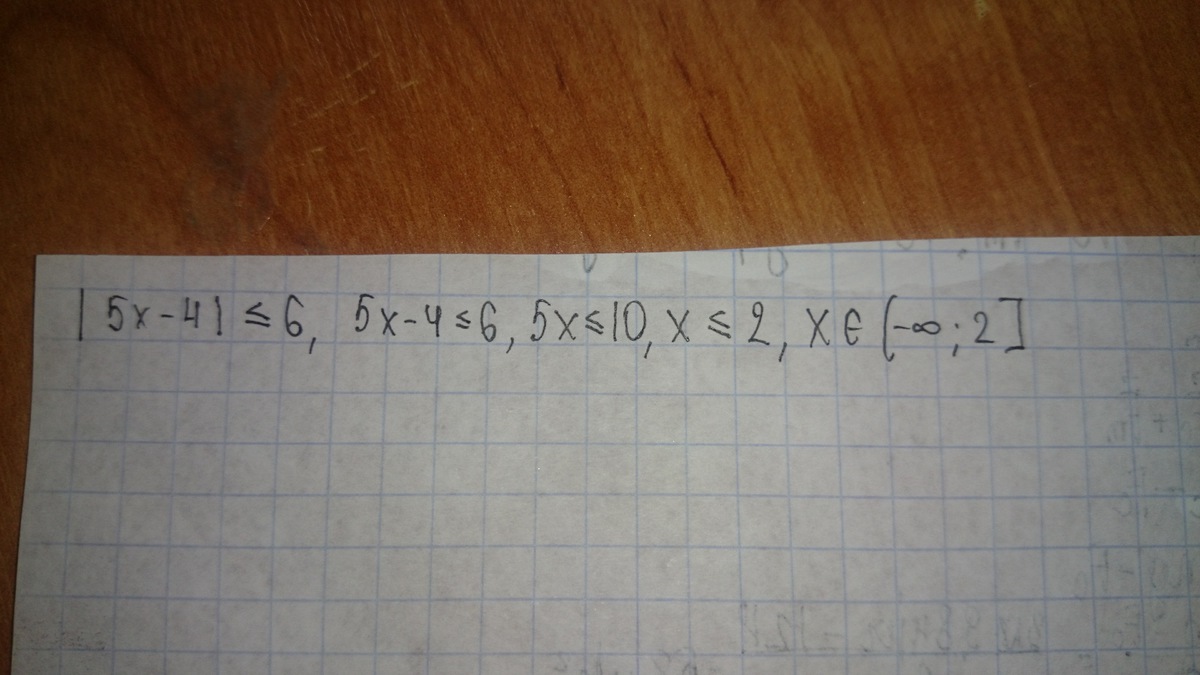 |5x-4| ≤ 6, 5x-4 ≤ 6, 5x ≤ 10, x ≤ 2, x ∈ (-∞; 2]